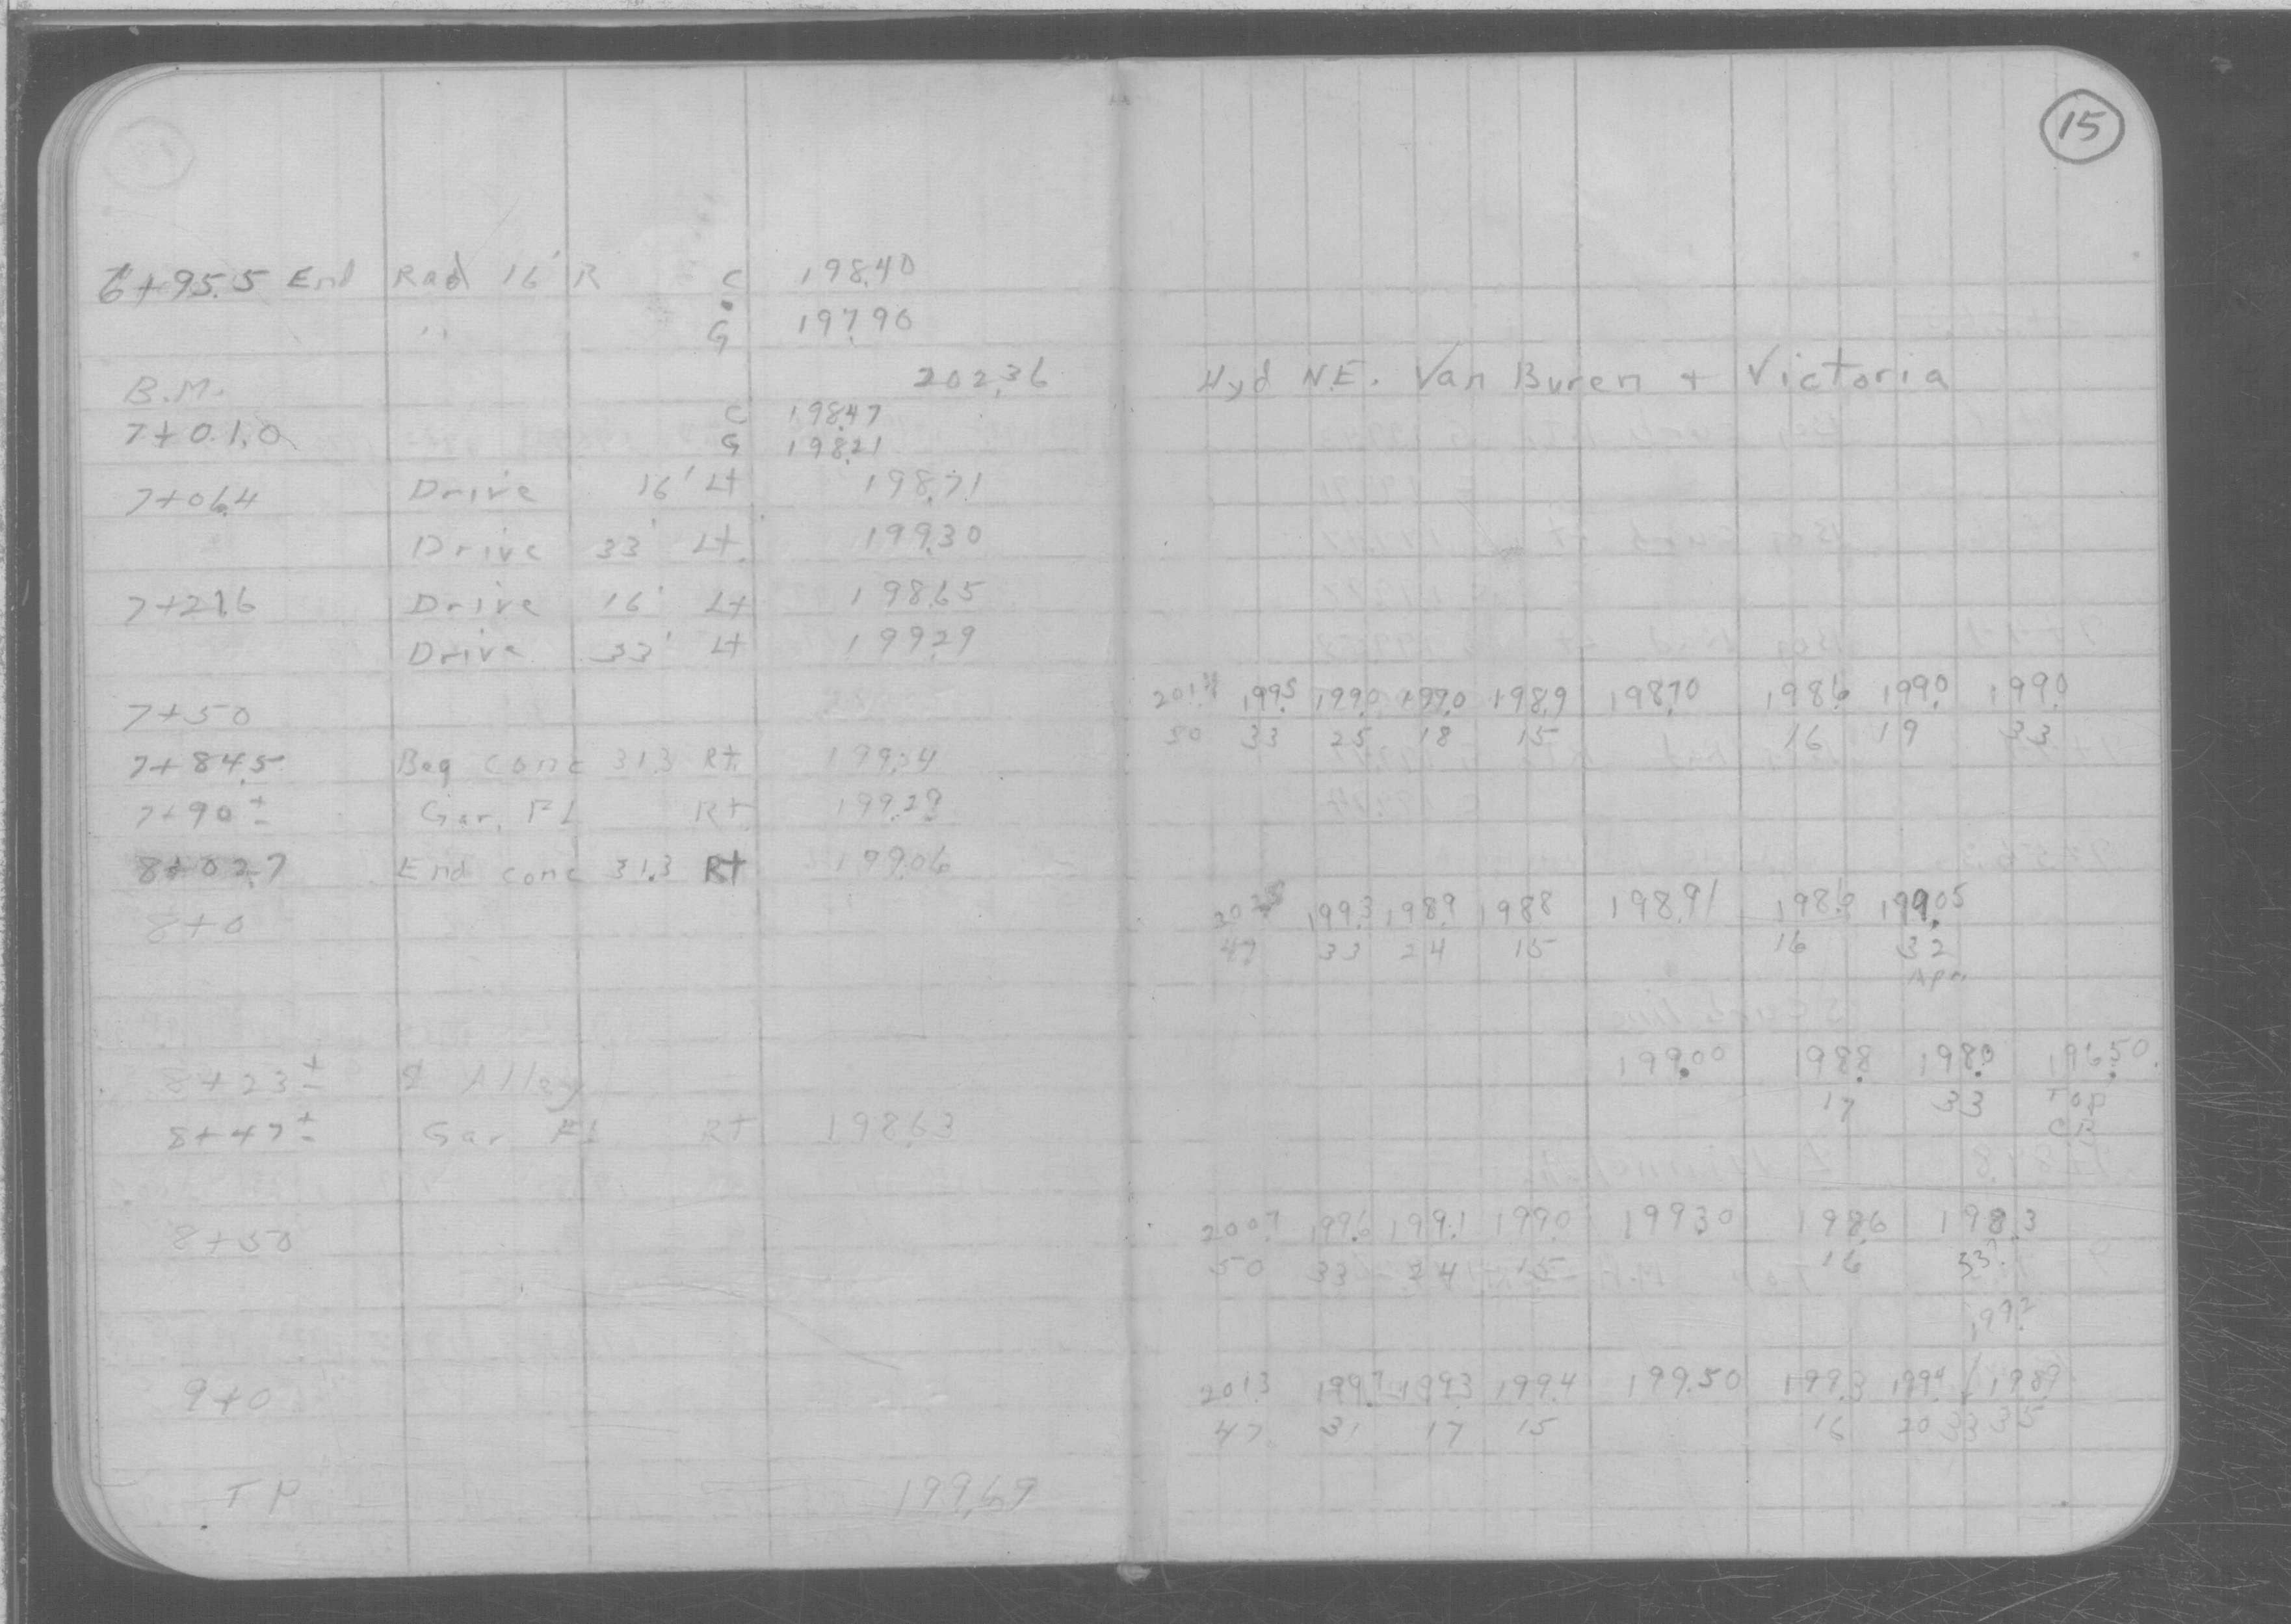 15
6+95.5 End Rad 16' R C 198.40
" G 197.90
B.M. 202.36 Hyd N.E. Van Buren + Victoria
7+01.0 C 198.47
G 198.21
7+06.4 Drive 16' Lt 198.71
Drive 33' Lt. 199.30
7+21.6 Drive 16' Lt 198.65
Drive 33' Lt 199.29
7+50 199.5 199.0 199.0 198.9 198.70 198.6 199.0 199.0
50 33 25 18 15 16 19 33
7+84.5 Beg conc 31.3 Rt. 199.24
7+90± Gar. Fl Rt 199.29
8+02.7 End conc 31.3 Rt 199.06
8+0 199.3 198.9 198.8 198.91 198.9 199.05
47 33 24 15 16 32
Apn
8+23± ⅊ Alley 199.00 198.8 198.0 196.50
17 33 Top
CB
8+47± Gar Fl Rt 198.63
8+50 200.7 199.6 199.1 199.0 199.30 198.6 198.3
50 33 24 15 16 33
199.2
9+0 201.3 199.7 199.3 199.4 199.50 199.3 199.4 / 198.9
47 31 17 15 16 20 33 35
TP 199.67